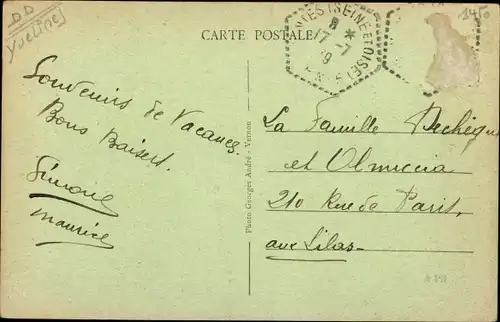 DD
Yvelines
1450
CARTE POSTALE
(SEINE ET OISE)
8 *
17-7
Souvenirs de Vacances
Bons Baisers.
Simone
Maurice
Photo Georges André - Vernon
La Famille
et
210 Rue de Paris,
aux Lilas